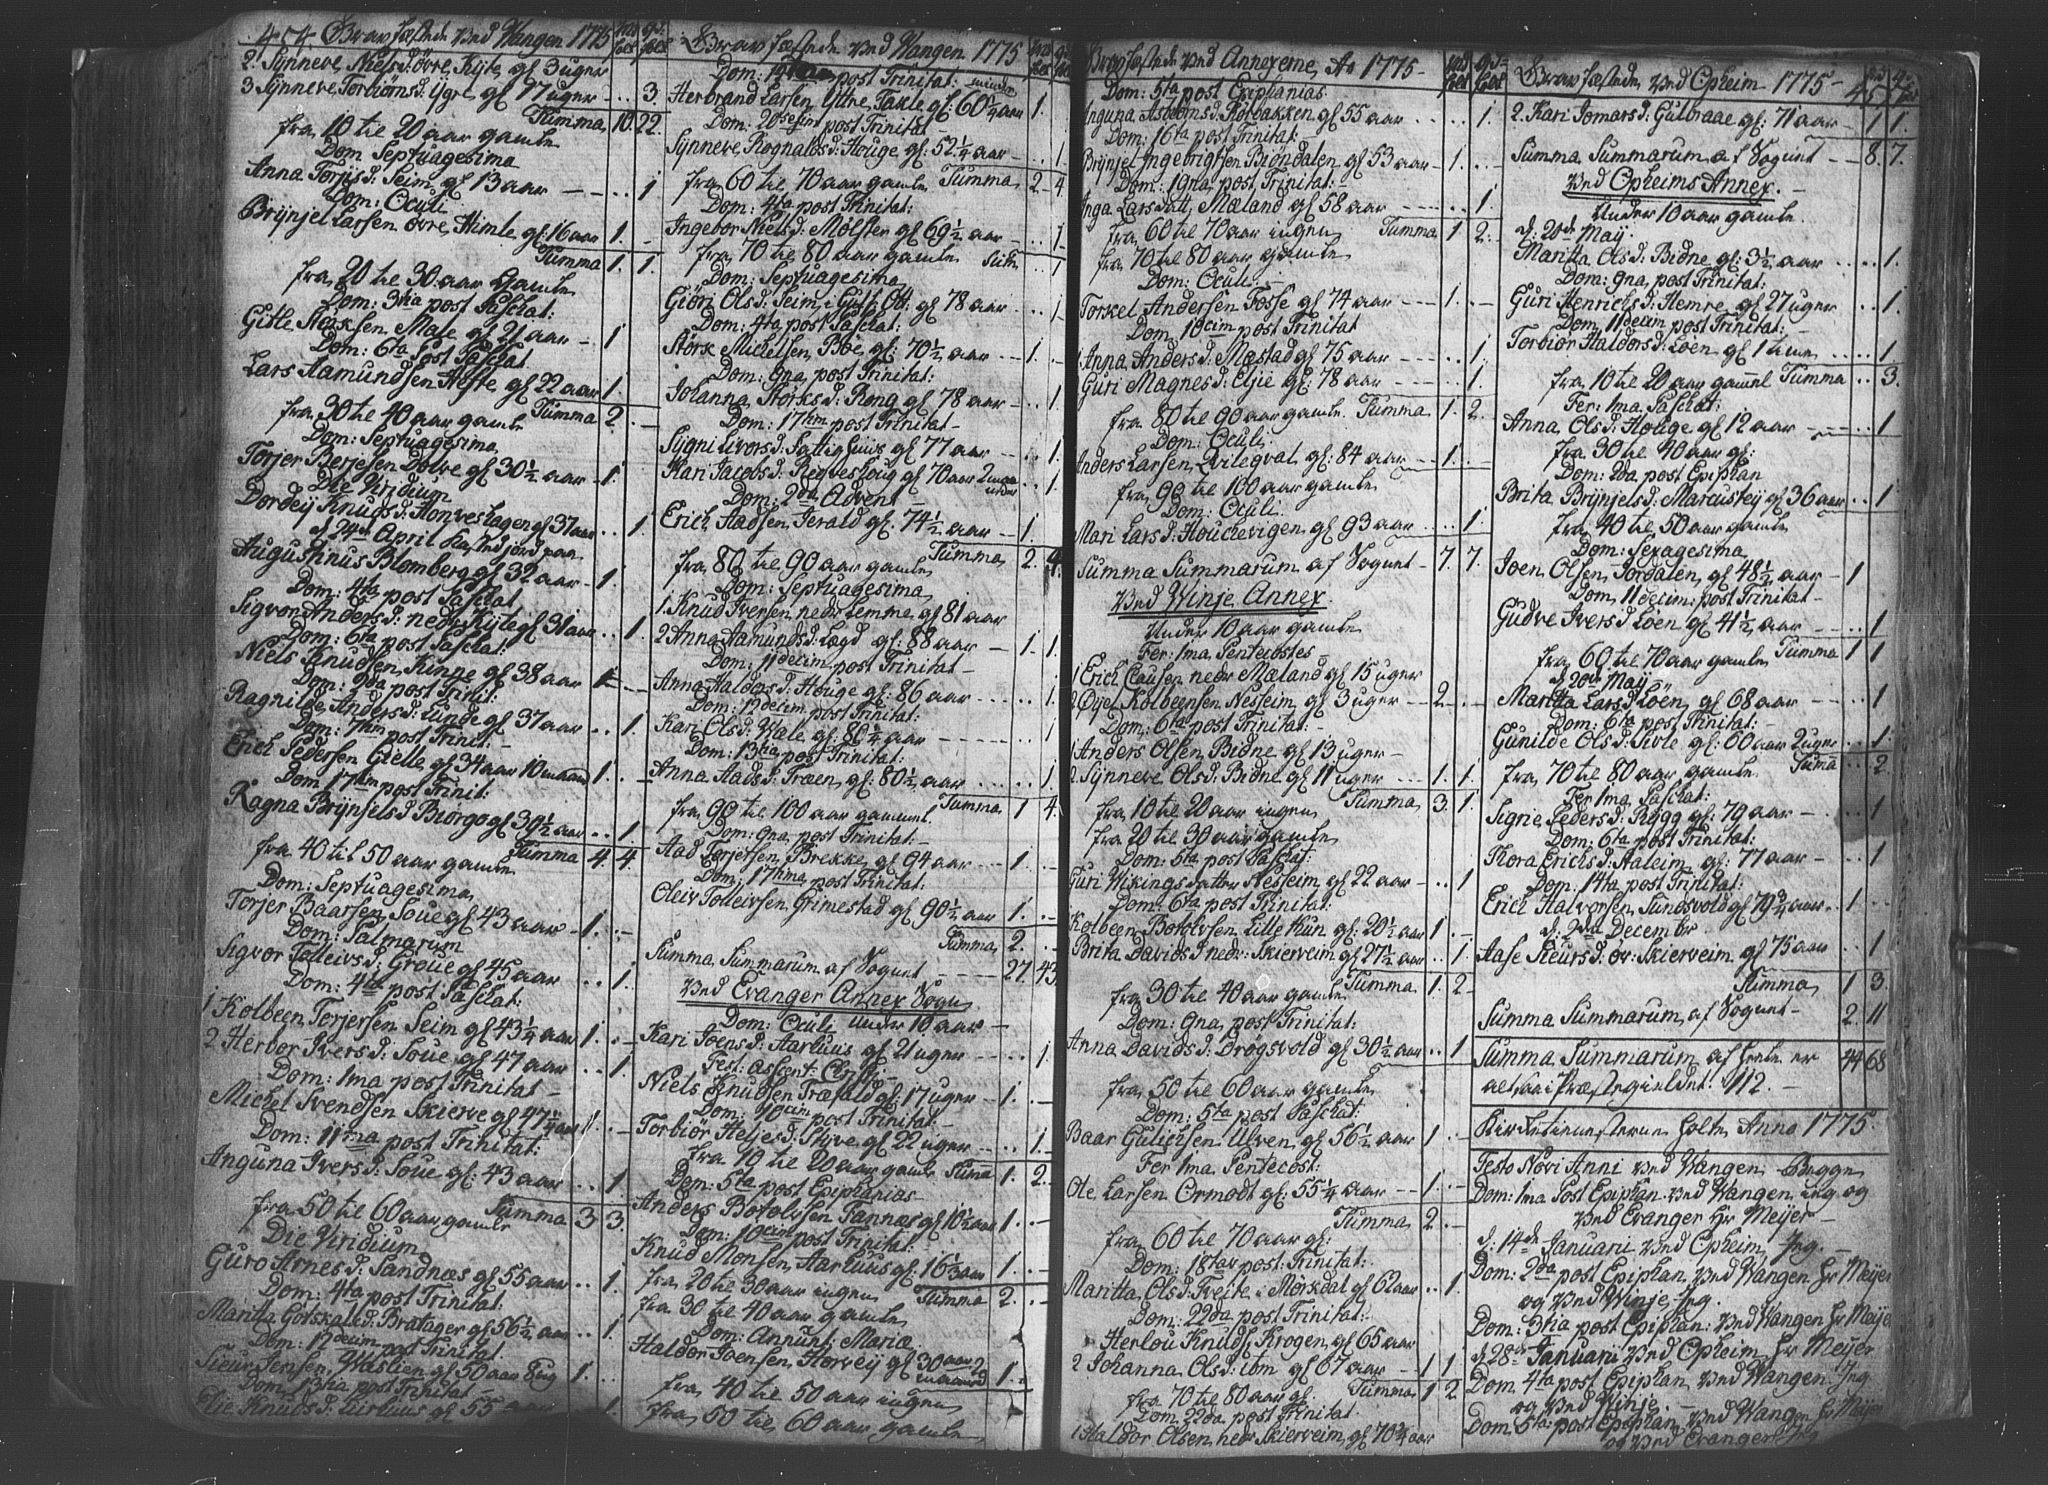 454 Bravfæstede Ved Wangen 1775
2. Synneve Nielsd: övre Kyte gl 3 uger
3 Synneve Torbiörnsd: Ygre gl 17 uger ... 3.
Summa 10. 22.
fra 10 til 20 aar gamle
Dom Septuagesima
Anna Torjisd: Seim gl 13 aar - - - 1
Dom: Oculi
Brynjel Larsen övre Himle gl: 16 aar 1. -
Summa 1. 1.
fra 20 til 30 aar Gamle
Dom: 3tia post Paschat:
Gitle Störksen Male gl 21 aar - 1
Dom: 6ta Post Paschat
Lars Aamundsen Nefte gl 22 aar 1.
fra 30 til 40 aar gamle Summa 2. -
Dom: Septuagesima
Torjer Berjesen Dolve gl 30½ aar - 1.
Die Viridium
Dordey Knudsd: Honveshagen gl 37 aar .. 1.
d 24de April Kasted jord paa
Augustinus Blomberg gl 32 aar - 1.
Dom: 4ta post Paschat
Sigvor Andersd: nedr Kyte gl 31 aar .. 1.
Dom: 6ta post Paschat:
Niels Knudsen Kinne gl 38 aar 1 -
Dom: 2da post Trinit:
Ragnilde Andersd: Lunde gl 37 aar .. 1.
Dom: 7tm post Trinit -
Erich Pedersen Gielle gl 34 aar 10 maan 1. -
Dom 17tm post Trinit:
Ragna Brynjelsd Biorgo gl 39½ aar .. 1.
fra 40 til 50 aar gamle Summa 4 4
Dom: Septuagesima
Torjer Baarsen Soue gl 43 aar - 1. -
Dom: Palmarum
Sigvor Tolleivsd: Groue gl 45 aar .. 1.
Dom: 4ta post Paschat:
1 Kolbeen Torjersen Seim gl 43¼ aar 1. -
2 Herbor Iversd: Soue gl 47 aar .. 1.
Dom: 1ma post Trinitat -
Michel Svendsen Skierve gl 47¼ aar 1. -
Dom: 11ma post Trinitat:
Anguna Iversd: Soue gl: 43 aar ... 1
fra 50 til 60 aar gamle Summa 3 3.
Die Viridium
Guro Arnesd: Sandnæs gl 55 aar .. 1.
Dom: 4ta post Trinitat:
Maritta Gotskalksd: Bratager gl 56½ aar .. 1.
Dom: 12decim post Trinitat
Sieur Jensen Waslien gl 50 aar 8 ug 1. -
Dom: 13tia post Trinitat
Knudsd: gl 55 aar .. 1.
Bravfæstede Ved Wangen 1775
Dom: post Trinitat:
Herbrand Larsen Yttre Takle gl: 60¼ aar 1.
Dom: 20sesim post Trinitat -
Synneve Rognaldsd: Houge gl: 52¼ aar - . 1.
fra 60 til 70 aar gamle Summa 2 - 4
Dom: 4ta post Trinitat:
Ingebor Nielsd: Mölster gl 69½ aar - .. 1
fra 70 til 80 aar gamle
Dom: Septuagesima
Giöri Olsd: Seim, gl: 78 aar .. 1
Dom: 4ta post Paschat:
Störk Michelsen Böe gl: 70½ aar - 1. -
Dom: 9na post Trinitat:
Johanna Störksd: Rong gl 78 aar - .. 1.
Dom: 17tm post Trinitat -
Sygni Livorsd: Fattighuus gl 77 aar .. 1.
Kari Jacobsd: gl 70 aar 2 uger .. 1
Dom: 2da Advent
Erich Aadsen Jerald gl: 74½ aar - 1.
fra 80 til 90 aar gamle Summa 2. 4.
Dom: Septuagesima
1. Knud Iversen nedr Lemme gl 81 aar
2 Anna Aamundsd: Lægd gl: 88 aar - 1. 1.
Dom: 11decim post Trinitat -
Anna Haldorsd: Houge gl: 86 aar .... 1.
Dom: 12decim post Trinitat:
Kari Olsd: Wale gl: 80¼ aar - - - 1
Dom: 13tia post Trinitat:
Anna Aadsd: Træen gl: 80½ aar .... 1
fra 90 til 100 aar gammel Summa 1 4.
Dom: 9na post Trinitat:
Aad Torjersen Brekke gl 94 aar - 1. -
Dom: 17tma post Trinitat:
Oleiv Tolleivsen Grimestad gl 90½ aar 1. -
Summa 2. -
Summa Summarum af Sognet - - - 27. 43.
Ved Evanger Annex Sogn
Dom: Oculi under 10 aar -
Kari Joensd: Aarhuus gl 21 uger .... 1.
Fest: ascent: Christi -
Niels Knudsen Træfald gl: 17 uger - 1. -
Dom: 10cim post Trinitat -
Torbiör Heljesd: Styve gl: 22 uger .. 1.
fra 10 til 20 aar gamle Suma 1. 2.
Dom: 5ta post Epiphanias -
Anders Botolvsen Fannæs gl 10½ aar 1. -
Dom: 10cim post Trinitat:
Knud Monsen Aarhuus gl 16½ aar 1 -
fra 20 til 30 aar ingen Summa 2. -
fra 30 til 40 aar gamle
Dom: Annunt Mariæ
Haldor Joensen Horvey gl 30 aar 2 maaned 1 -
fra 40 til 50 aar ingen
fra 50 til 60 aar gamle
Bravfæstede Ved Annexerne Ao 1775 -
Dom: 5ta post Epiphanias
Inguna Asbiörnsd: Rörbakken gl 55 aar .. 1.
Dom: 16ta post Trinitat: -
Brynjel Ingebrigtsen Biöndalen gl 53 aar - 1. -
Dom: 19na post Trinitat: -
Inga Larsdatt Mæland gl 58 aar .... 1
fra 60 til 70 aar ingen Summa 1 2.
fra 70 til 80 aar gamle
Dom: Oculi.
Torkel Andersen Fosse gl 74 aar - - - 1. -
Dom: 10cim post Trinitat
1 Anna Andersd: Mæstad gl 75 aar .... 1.
Guri Magnesd: Eljie gl: 78 aar - .. 1.
fra 80 til 90 aar gamle Summa 1. 2.
Dom: Oculi.
Anders Larsen Qvilegval gl: 84 aar - 1. -
fra 90 til 100 aar gamle
Dom: Oculi.
Mari Larsd: Houchevigen gl 93 aar .... 1.
Summa Summarum af Sognet - 7. 7.
Ved Winje Annex.
Under 10 aar gamle
Fer: 1ma Pentecostes -
1 Erich Clausen nedr Mæland gl 15 uger
2 Odjel Kolbeensen Nesheim gl 3 uger - 2 -
Dom: 6ta post Trinitat:
1 Anders Olsen Bidne gl 13 uger -
2. Synneve Olsd: Bidne gl 11 uger - - 1. 1.
fra 10 til 20 aar ingen Summa 3. 1.
fra 20 til 30 aar gamle
Dom: 5ta post Paschat:
Guri Wikingsdatter Nesheim gl 22 aar - .. 1
Dom: 6ta post Trinitat:
Kolbeen Botolvsen Lille Kun gl: 20½ aar 1. -
Brita Davidsd nedr: Skierveim gl 27½ aar .. 1.
fra 30 til 40 aar gamle Summa 1. 2 -
Dom: 9na post Trinitat:
Anna Davidsd: Drögsvold gl 30½ aar .. 1
fra 50 til 60 aar gamle
Dom: 5ta post Paschat:
Baar Gulichsen Ulven gl 56½ aar 1. -
Fer 1ma Pentecost:
Ole Larsen Ormodt gl: 55¼ aar - 1. -
Summa 2. -
fra 60 til 70 aar gl:
Dom: 18tav post Trinitat:
Maritta Olsd: Tveite i Mörkdal gl 62 aar .. 1.
Dom: 22da post Trinitat:
Herlou Knuds: Krogen gl 65 aar
2 Johanna Olsd: ibm gl 67 aar - 1 1
fra 70 til 80 aar gl: Summa 1 2.
Dom: 22da post Trinitat:
1 Haldor Olsen nedr Skierveim gl 70¾ aar
Bravfæstede Ved Opheim 1775 - 45
2. Kari Jomarsd: Gulbraae gl: 71 aar - 1 1.
Summa Summarum af Sognet - 8. 7.
Ved Opheims Annex. -
Under 10 aar gamle
d: 20de May.
Maritta Olsd: Bidne gl: 3½ aar .... 1.
Dom: 9na post Trinitat:
Guri Henrichsd: Hemre gl 27 uger ... 1.
Dom, 11decim post Trinitat: -
Torbiör Haldorsd: Löen gl 1 time .... 1
fra 10 til 20 aar gammel Summa .. 3.
Fer: 1ma Paschat:
Anna Olsd: Houge gl 12 aar .... 1
fra 30 til 40 aar gl:
Dom: 2da post Epiphan
Brita Brynjelsd: Marcustey gl 36 aar .. 1
fra 40 til 50 aar gamle
Dom: Sexagesima
Joen Olsen Jordalen gl 48½ aar - 1
Dom, 11decim: post Trinitat -
Gudve Iversd: Löen gl 41½ aar .... 1
fra 60 til 70 aar gamle Summa 1 1
d 20de May
Maritta Larsd: Löen gl 68 aar - - 1
Dom: 6ta post Trinitat: -
Gunilde Olsd: Sivle gl: 60 aar 2 uger .. 1.
fra 70 til 80 aar gamle Suma ... 2
Fer 1ma Paschat:
Sigrie Pedersd: Rögg gl: 79 aar - .. 1
Dom: 6ta post Trinitat:
Thora Erichsd: Aaleim gl: 77 aar - .. 1
Dom: 14ta post Trinitat:
Erich Halvorsen Sundsvold gl 79¾ aar .. 1 -
d: 2da Decembr
Aase Sieursd: öv: Skierveim gl 75 aar ... 1
Summa 1 3.
Summa Summarum af Sognet - 2. 11
Summa Summarum af hele er 44 68
altsaa i Præstegieldet 112. -
Kirketienesterne holte Anno 1775.
Festo Novi Anni Ved Wangen - Begge
Dom: 1ma Post Epiphan Ved Wangen ing og
Ved Evanger Hr Meijer -
d: 14de Januarii Ved Opheim, Ing. -
Dom: 2da post Epiphan Ved Wangen Hr Meijer
og Ved Winje Ing. -
Dom: 3tia post Epiphan Ved Wangen Hr Meijer
d 28de Januarii Ved Opheim, Hr Meijer
Dom 4ta post Epiphan Ved Wangen Ing
og Ved Winje. -
Dom 5ta post Epiphan Ved Wangen Hr Meijer
og Ved Evanger Ing